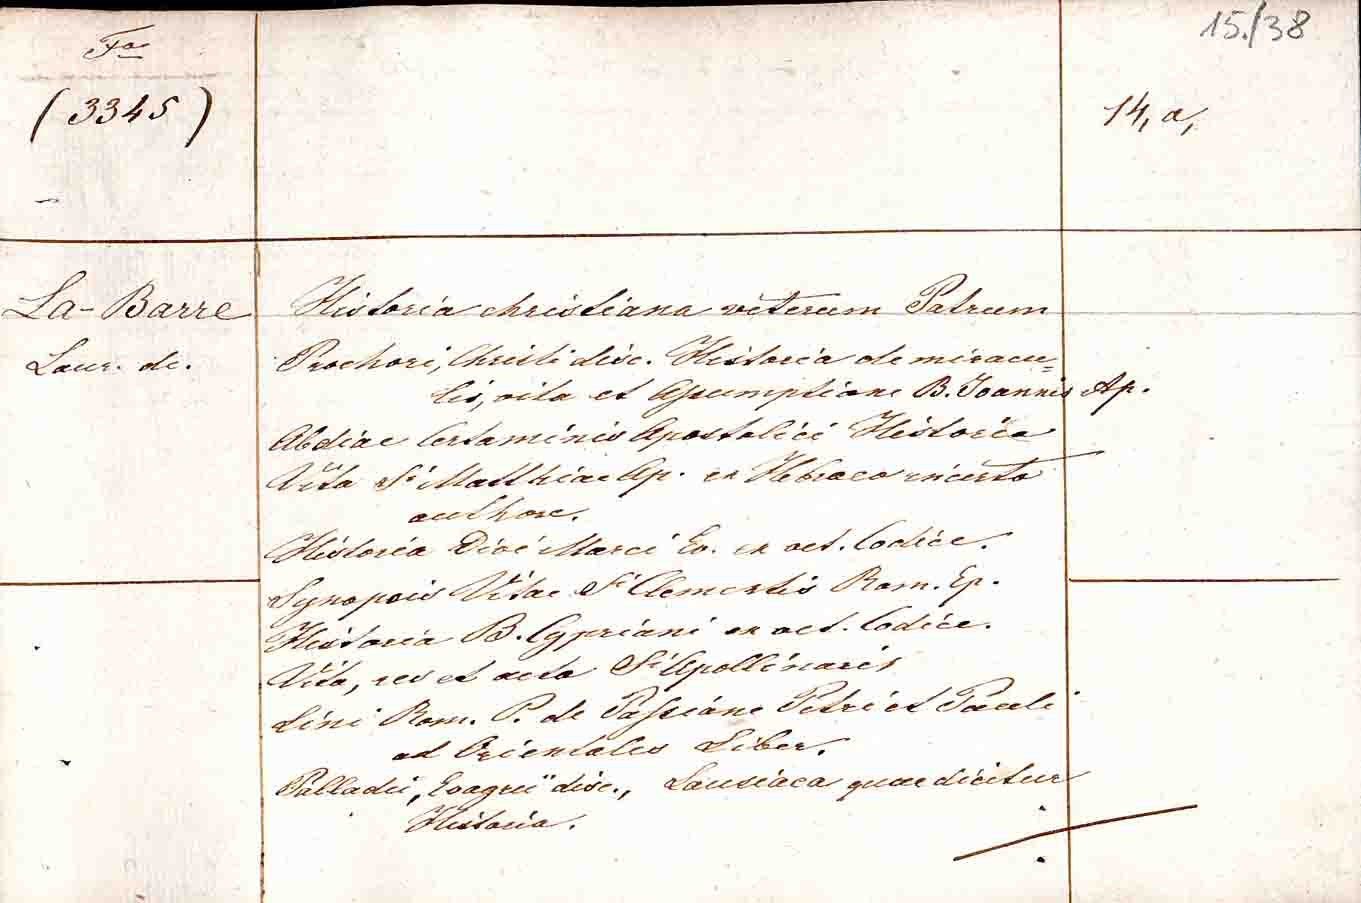 15./38
Fa
(3345)
14, a,
La-Barre
Laur. de.
Historia christiana veterum Patrum
Prochori, Christi disc. Historia de miracu=
lis, vita et assumptione B. Joannis Ap.
Abdiae Certaminis Apostolici Historia
Vita Sti Matthiae Ap. ex Hebraeo incerto
authore.
Historia Divi Marci Ev. ex vet. Codice.
Synopsis Vitae Sti Clementis Rom. Ep.
Historia B. Cypriani ex vet. Codice.
Vita, res et acta Sti Apollinaris
Lini Rom. P. de Passione Petri et Pauli
ad Orientales Liber.
Palladii, Evagrii disc., Lausiaca quae dicitur
Historia.